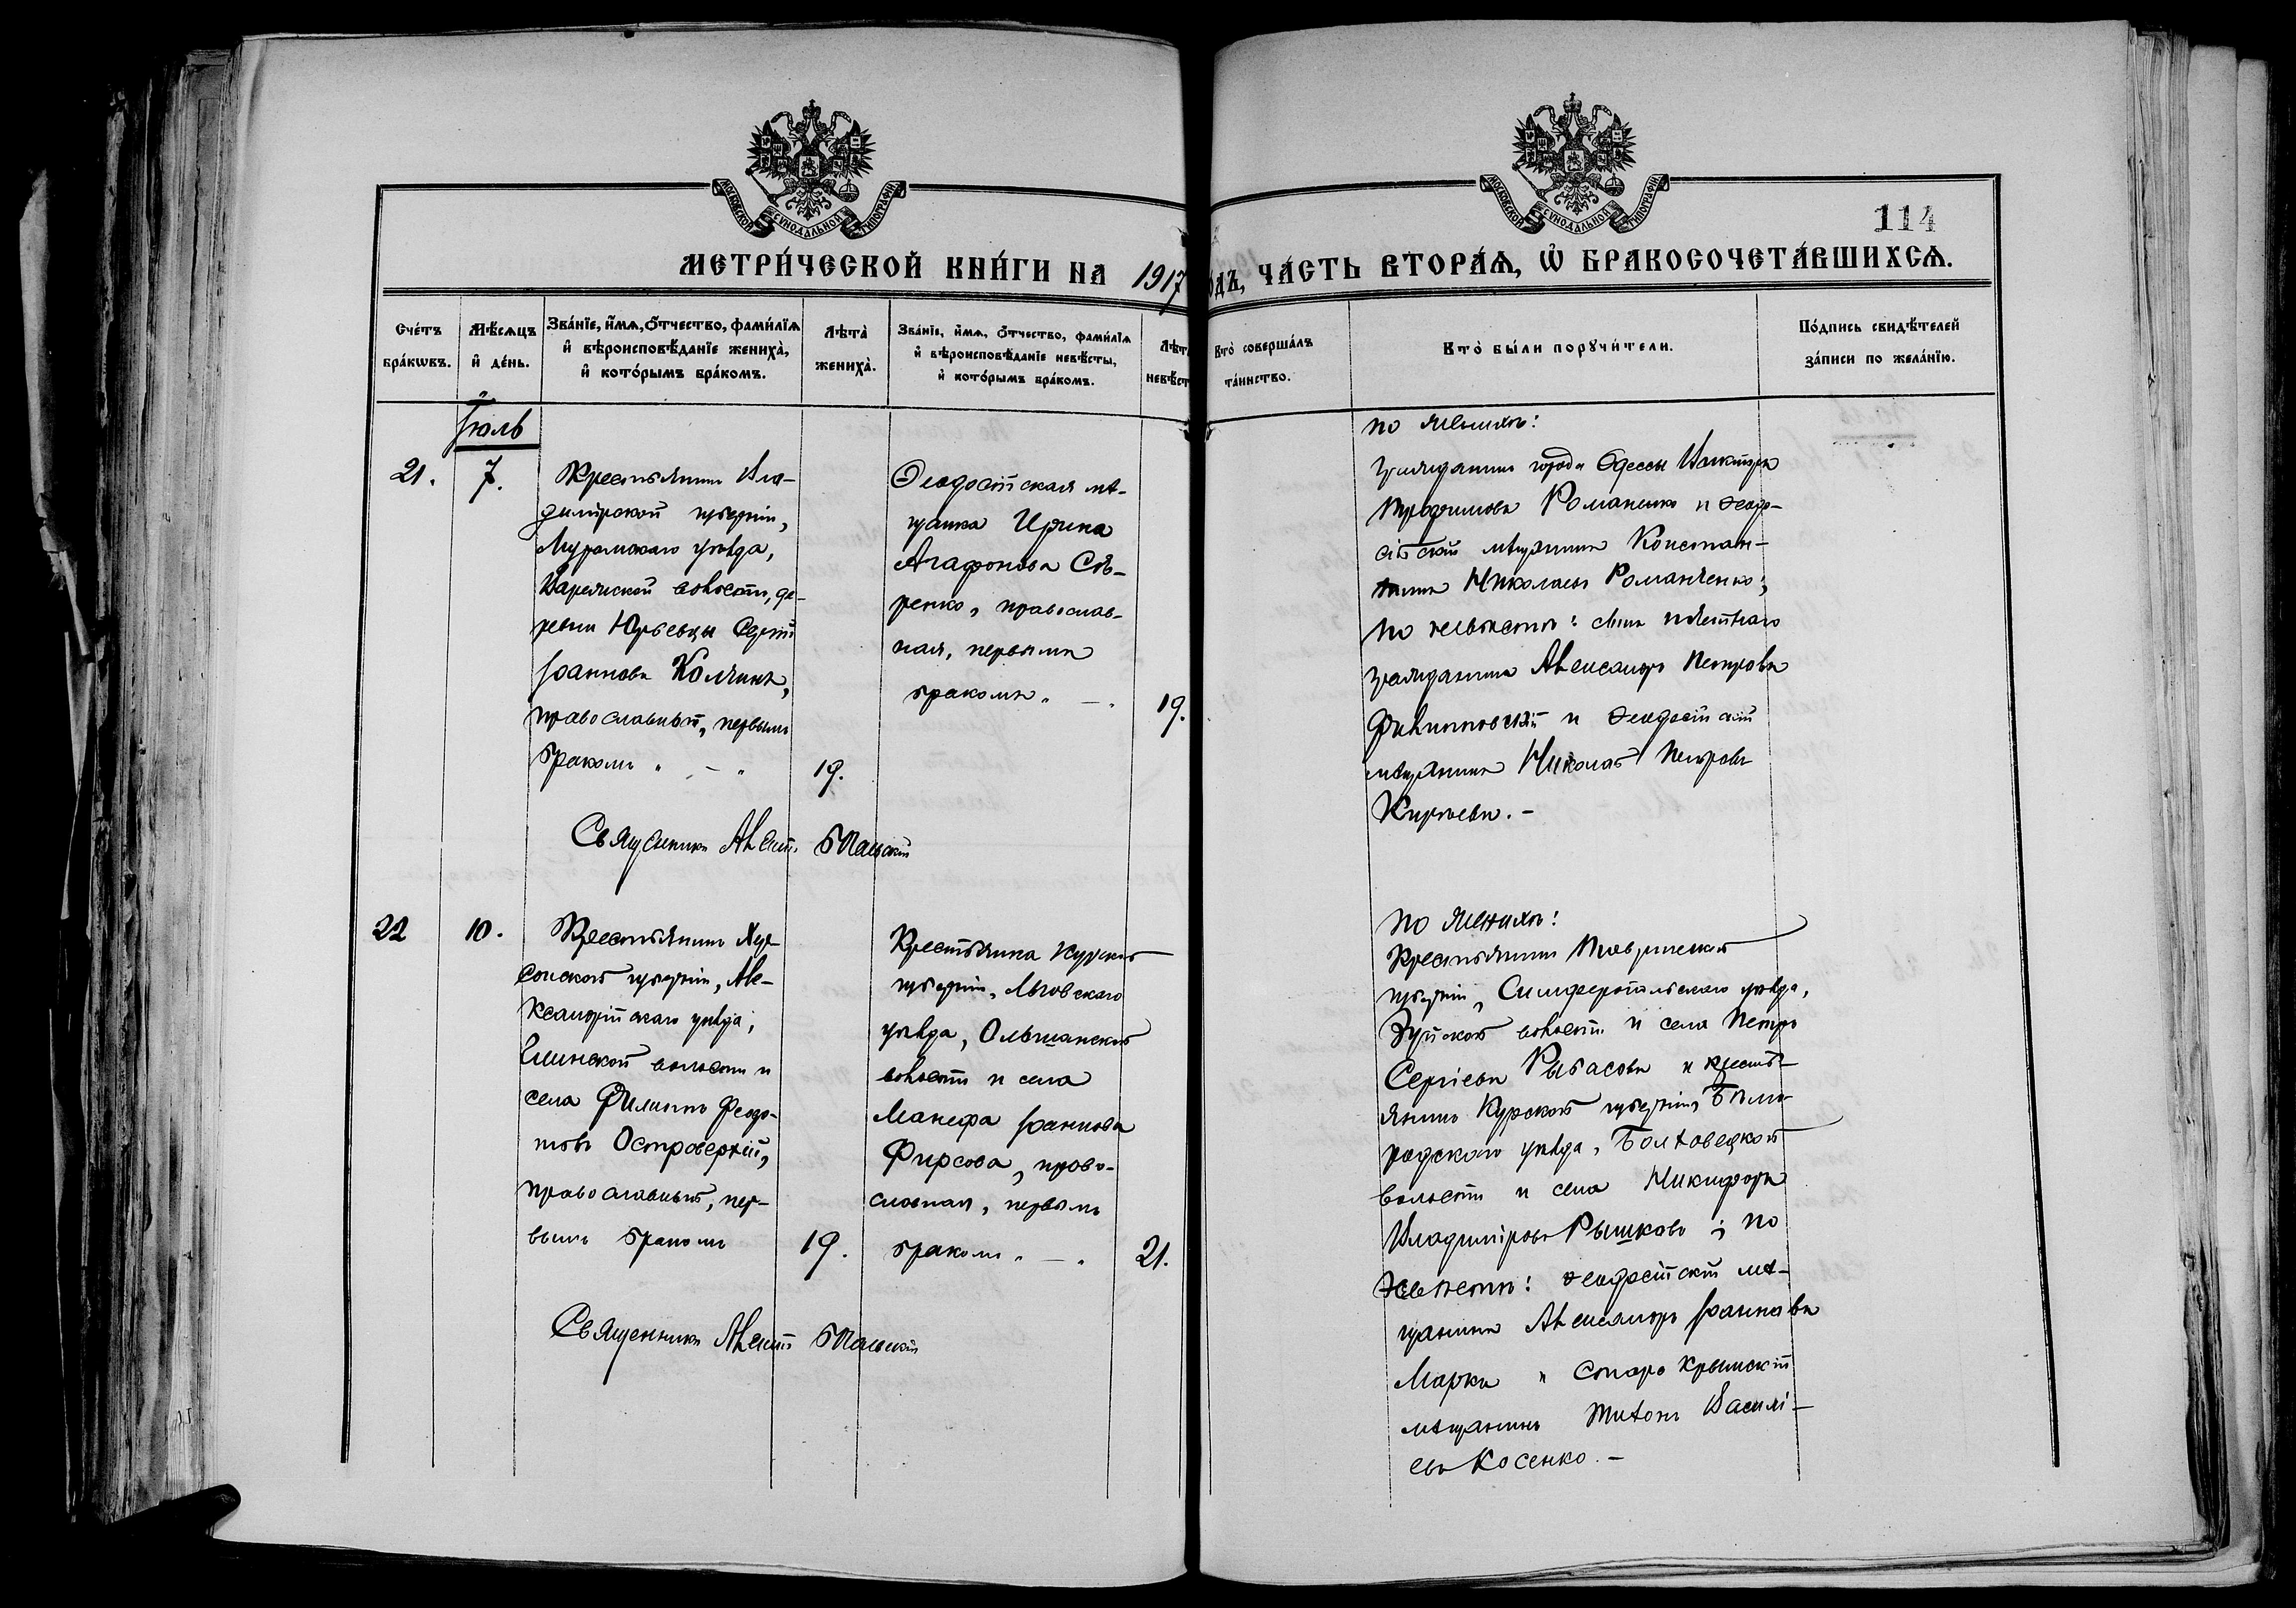 МОСКОВСКОЙ СѴНОДАЛЬНОЙ ТИПОГРАФІИ
МОСКОВСКОЙ СѴНОДАЛЬНОЙ ТИПОГРАФІИ
114
МЕТРИ́ЧЕСКОЙ КНИ́ГИ НА 1917
ОДЪ, ЧА́СТЬ ВТОРА́Ѧ, Ѡ҆ БРАКОСОЧЕТА́ВШИХСѦ.
Сче́тъ
бра́кѡвъ.
Мѣ́сѧцъ
и҆ де́нь.
Зва́нїе, и҆́мѧ, ѻ҆́тчество, фами́лїѧ
и҆ вѣроисповѣ́данїе жениха̀,
и҆ кото́рымъ бра́комъ.
Лѣ́та
жениха̀.
Зва́нїе, и҆́мѧ, ѻ҆́тчество, фами́лїѧ
и҆ вѣроисповѣ́данїе невѣ́сты,
и҆ кото́рымъ бра́комъ.
Лѣ́т
невѣ́ст
Кто̀ соверша́лъ
та́инство.
Кто̀ бы́ли порꙋчи́тели.
По́дпись свидѣ́телей
за́писи по жела́нїю.
Іюль
21.
7.
Крестьянинъ Вла-
димірской губерніи,
Муромскаго уѣзда,
Варежской волости, де-
ревни Юрьевцы Сергій
Іоанновъ Колчинъ,
православный, первымъ
бракомъ " — "
19.
Ѳеодосійская мѣ-
щанка Ирина
Агафонова Сѣ-
ренко, православ-
ная, первымъ
бракомъ " — "
19.
Священникъ Алексѣй
по женихѣ:
гражданинъ города Одессы Викторъ
Трофимовъ Романенко и Ѳеодо-
сійскій мѣщанинъ Констан-
тинъ Николаевъ Романченко;
по невѣстѣ: сынъ почетнаго
гражданина Александръ Петровъ
Филипповскій и Ѳеодосійскій
мѣщанинъ Николай Петровъ
Кирѣевъ. —
22
10.
Крестьянинъ Хер-
сонской губерніи, Але-
ксандрійскаго уѣзда,
волости и
села Филиппъ Ѳеодо-
товъ Островерхій,
православный, пер-
вымъ бракомъ
19.
Крестьянка Курской
губерніи, Льговскаго
уѣзда, Ольшанской
волости и села
Манефа Іоаннова
Фирсова, право-
славная, первымъ
бракомъ " — "
21.
Священникъ Алексѣй
по женихѣ:
Крестьянинъ Таврической
губерніи, Симферопольскаго уѣзда,
Зуйской волости и села Петръ
Сергіевъ Рыбасовъ и кресть-
янинъ Курской губерніи, Бѣлго-
родскаго уѣзда, Болховецкой
волости и села Никифоръ
Владиміровъ Рышково; по
невѣстѣ: Ѳеодосійскій мѣ-
щанинъ Александръ Іоанновъ
Марки и старо крымскій
мѣщанинъ Титонъ Василі-
евъ Косенко. —